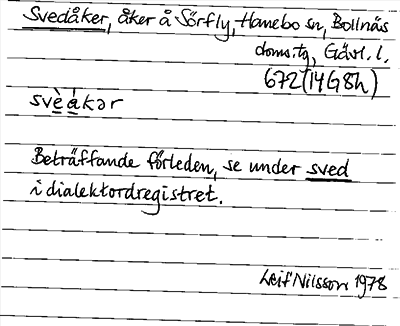 Svedåker, åker å Sörfly, Hanebo sn, Bollnäs
doms.tg, Gävl. l.
672 (14G8h)
svè̱á̱kər
Beträffande förleden, se under sved
i dialektordregistret.
Leif Nilsson 1978